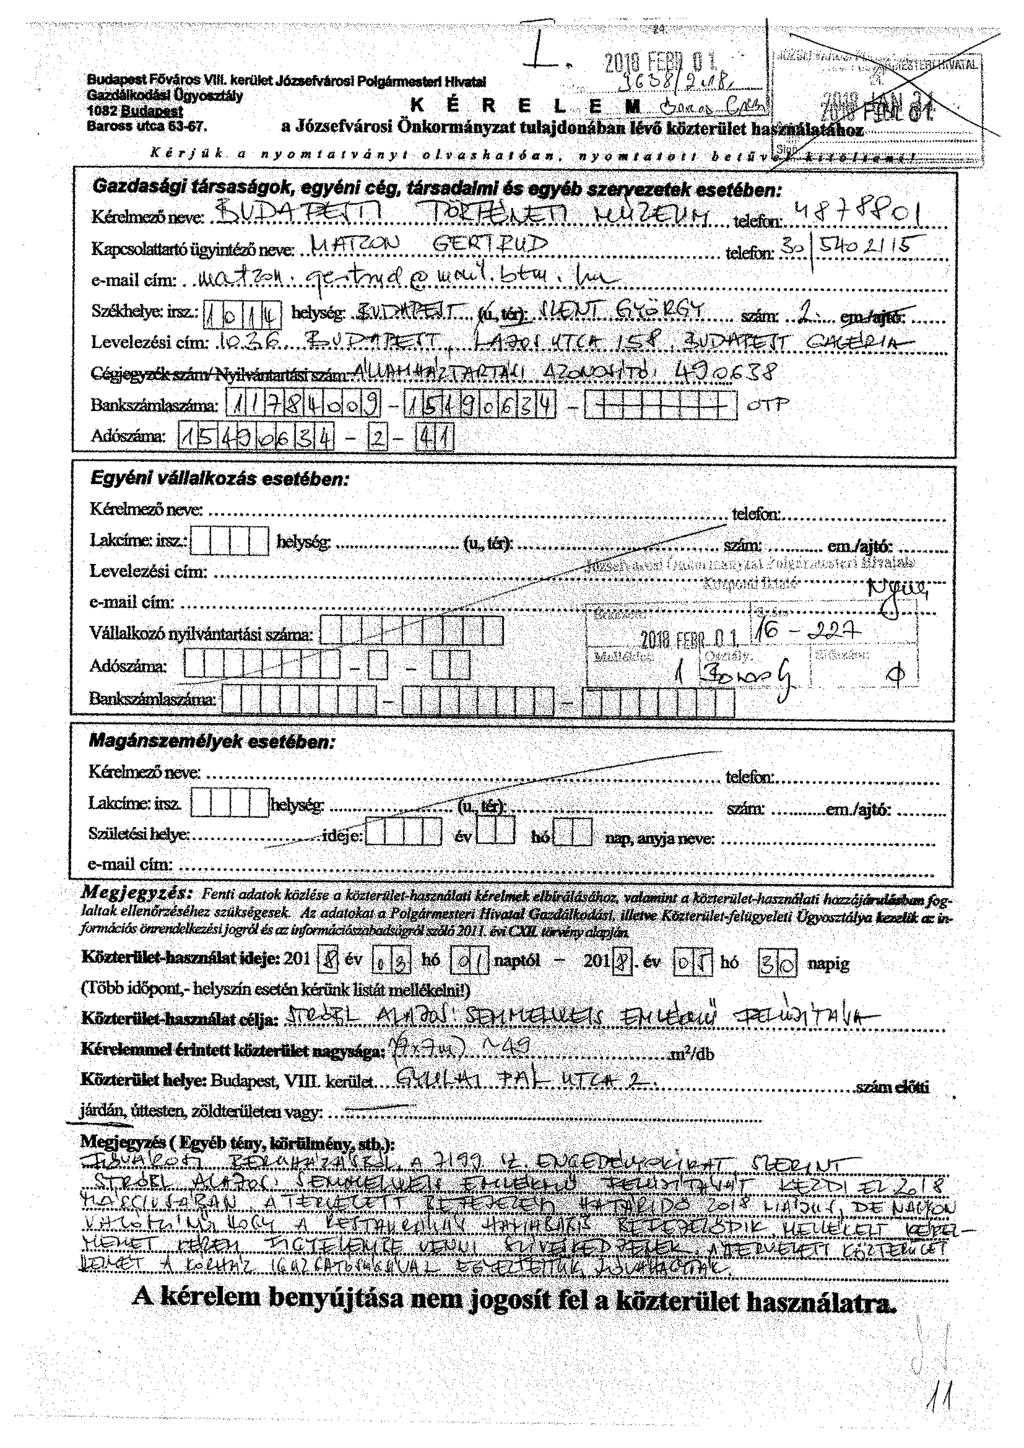 24.
I.
2018 FEBR 01.
Budapest Főváros VIII. kerület Józsefvárosi Polgármesteri Hivatal
Gazdálkodási Ügyosztály
1082 Budapest
Baross utca 63-67.
K É R E L E M
a Józsefvárosi Önkormányzat tulajdonában lévő közterület használatához
Kérjük a nyomtatványt olvashatóan, nyomtatott betűvel kitölteni!
Gazdasági társaságok, egyéni cég, társadalmi és egyéb szervezetek esetében:
Kérelmező neve: BUDAPESTI TÖRTÉNETI MÚZEUM telefon: 4878801
Kapcsolattartó ügyintéző neve: MATZON GERTRUD telefon: 30/5402115
e-mail cím: matzon.gertrud@mail.btm.hu
Székhelye: irsz.: 1014 helység: BUDAPEST (u., tér): SZENT GYÖRGY szám: 2. em./ajtó:
Levelezési cím: 1036 BUDAPEST, LAJOS UTCA 158. BUDAPEST GALÉRIA
Cégjegyzék szám/Nyilvántartási szám: ÁLLAMHÁZTARTÁSI AZONOSÍTÓ: 490638
Bankszámlaszáma: 11784009 - 15490634 - OTP
Adószáma: 15490634 - 2 - 41
Egyéni vállalkozás esetében:
Kérelmező neve: telefon:
Lakcíme: irsz.: helység: (u., tér): szám: em./ajtó:
Levelezési cím:
e-mail cím:
Vállalkozó nyilvántartási száma:
2018 FEBR. 01. 16 - 227
Adószáma: - -
Bankszámlaszáma: - -
Magánszemélyek esetében:
Kérelmező neve: telefon:
Lakcíme: irsz. helység: (u., tér): szám: em./ajtó:
Születési helye: ideje: év hó nap, anyja neve:
e-mail cím:
Megjegyzés: Fenti adatok közlése a közterület-használati kérelmek elbírálásához, valamint a közterület-használati hozzájárulásban fog-
laltak ellenőrzéséhez szükségesek. Az adatokat a Polgármesteri Hivatal Gazdálkodási, illetve Közterület-felügyeleti Ügyosztálya kezelik az in-
formációs önrendelkezési jogról és az információszabadságról szóló 2011. évi CXII. törvény alapján.
Közterület-használat ideje: 2018 év 03 hó 01 naptól - 2018. év 05 hó 30 napig
(Több időpont,- helyszín esetén kérünk listát mellékelni!)
Közterület-használat célja: STRÓBL ALAJOS: SEMMELWEIS EMLÉKMŰ FELÚJÍTÁSA
Kérelemmel érintett közterület nagysága: (7x7m) ~49 m²/db
Közterület helye: Budapest, VIII. kerület GYULAI PÁL UTCA 2. szám előtti
járdán, úttesten, zöldterületen vagy:
Megjegyzés ( Egyéb tény, körülmény, stb.):
FŐVÁROSI BERUHÁZÁSBÓL, A 7199 SZ. ENGEDÉLYOKIRAT SZERINT
STRÓBL ALAJOS: SEMMELWEIS EMLÉKMŰ FELÚJÍTÁSÁT KEZDI EL 2018
MÁRCIUSÁBAN A TERVEZETT BEFEJEZÉSI HATÁRIDŐ 2018 MÁJUS, DE NAGYON
VALÓSZÍNŰ HOGY A RESTAURÁLÁS HAMARABB BEFEJEZŐDIK. MELLÉKELT KÉREL-
MEMET KÉREM FIGYELEMBE VENNI SZÍVESKEDJENEK. A TERVEZETT KÖZTERÜLET
A KÓRHÁZ IGAZGATÓSÁGÁVAL EGYEZTETTÜK, JÓVÁHAGYTÁK.
A kérelem benyújtása nem jogosít fel a közterület használatra.
11